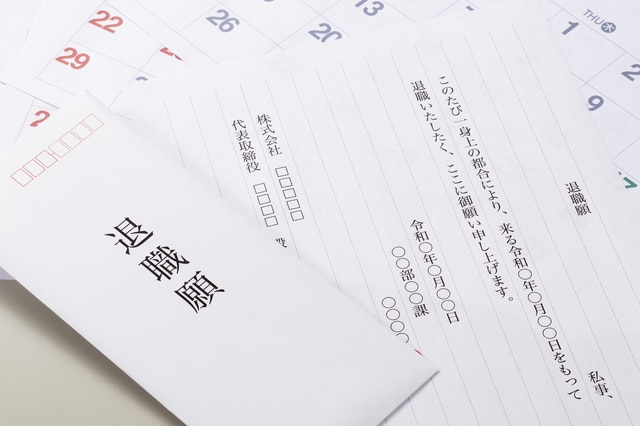 退職願
私事、
このたび一身上の都合により、来る令和〇年〇月〇〇日をもって
退職いたしたく、ここに御願い申し上げます。
令和〇年〇月〇〇日
〇〇部〇〇課
〇〇〇〇
株式会社 □□□□
代表取締役 □□□□
退職願
22
29
2
26
20
13
THU
木
1